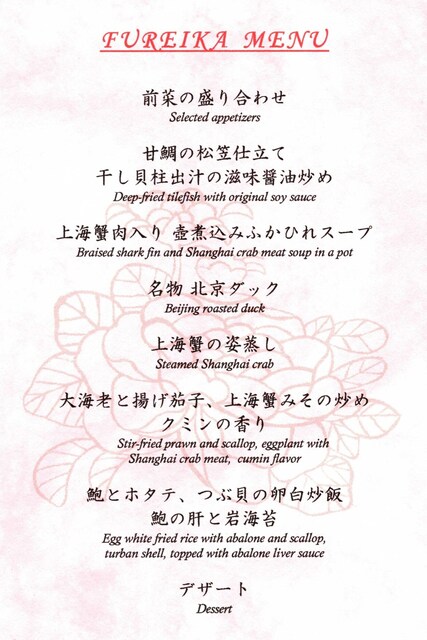 FUREIKA MENU
前菜の盛り合わせ
Selected appetizers
甘鯛の松笠仕立て
干し貝柱出汁の滋味醤油炒め
Deep-fried tilefish with original soy sauce
上海蟹肉入り 壺煮込みふかひれスープ
Braised shark fin and Shanghai crab meat soup in a pot
名物 北京ダック
Beijing roasted duck
上海蟹の姿蒸し
Steamed Shanghai crab
大海老と揚げ茄子、上海蟹みその炒め
クミンの香り
Stir-fried prawn and scallop, eggplant with
Shanghai crab meat, cumin flavor
鮑とホタテ、つぶ貝の卵白炒飯
鮑の肝と岩海苔
Egg white fried rice with abalone and scallop,
turban shell, topped with abalone liver sauce
デザート
Dessert